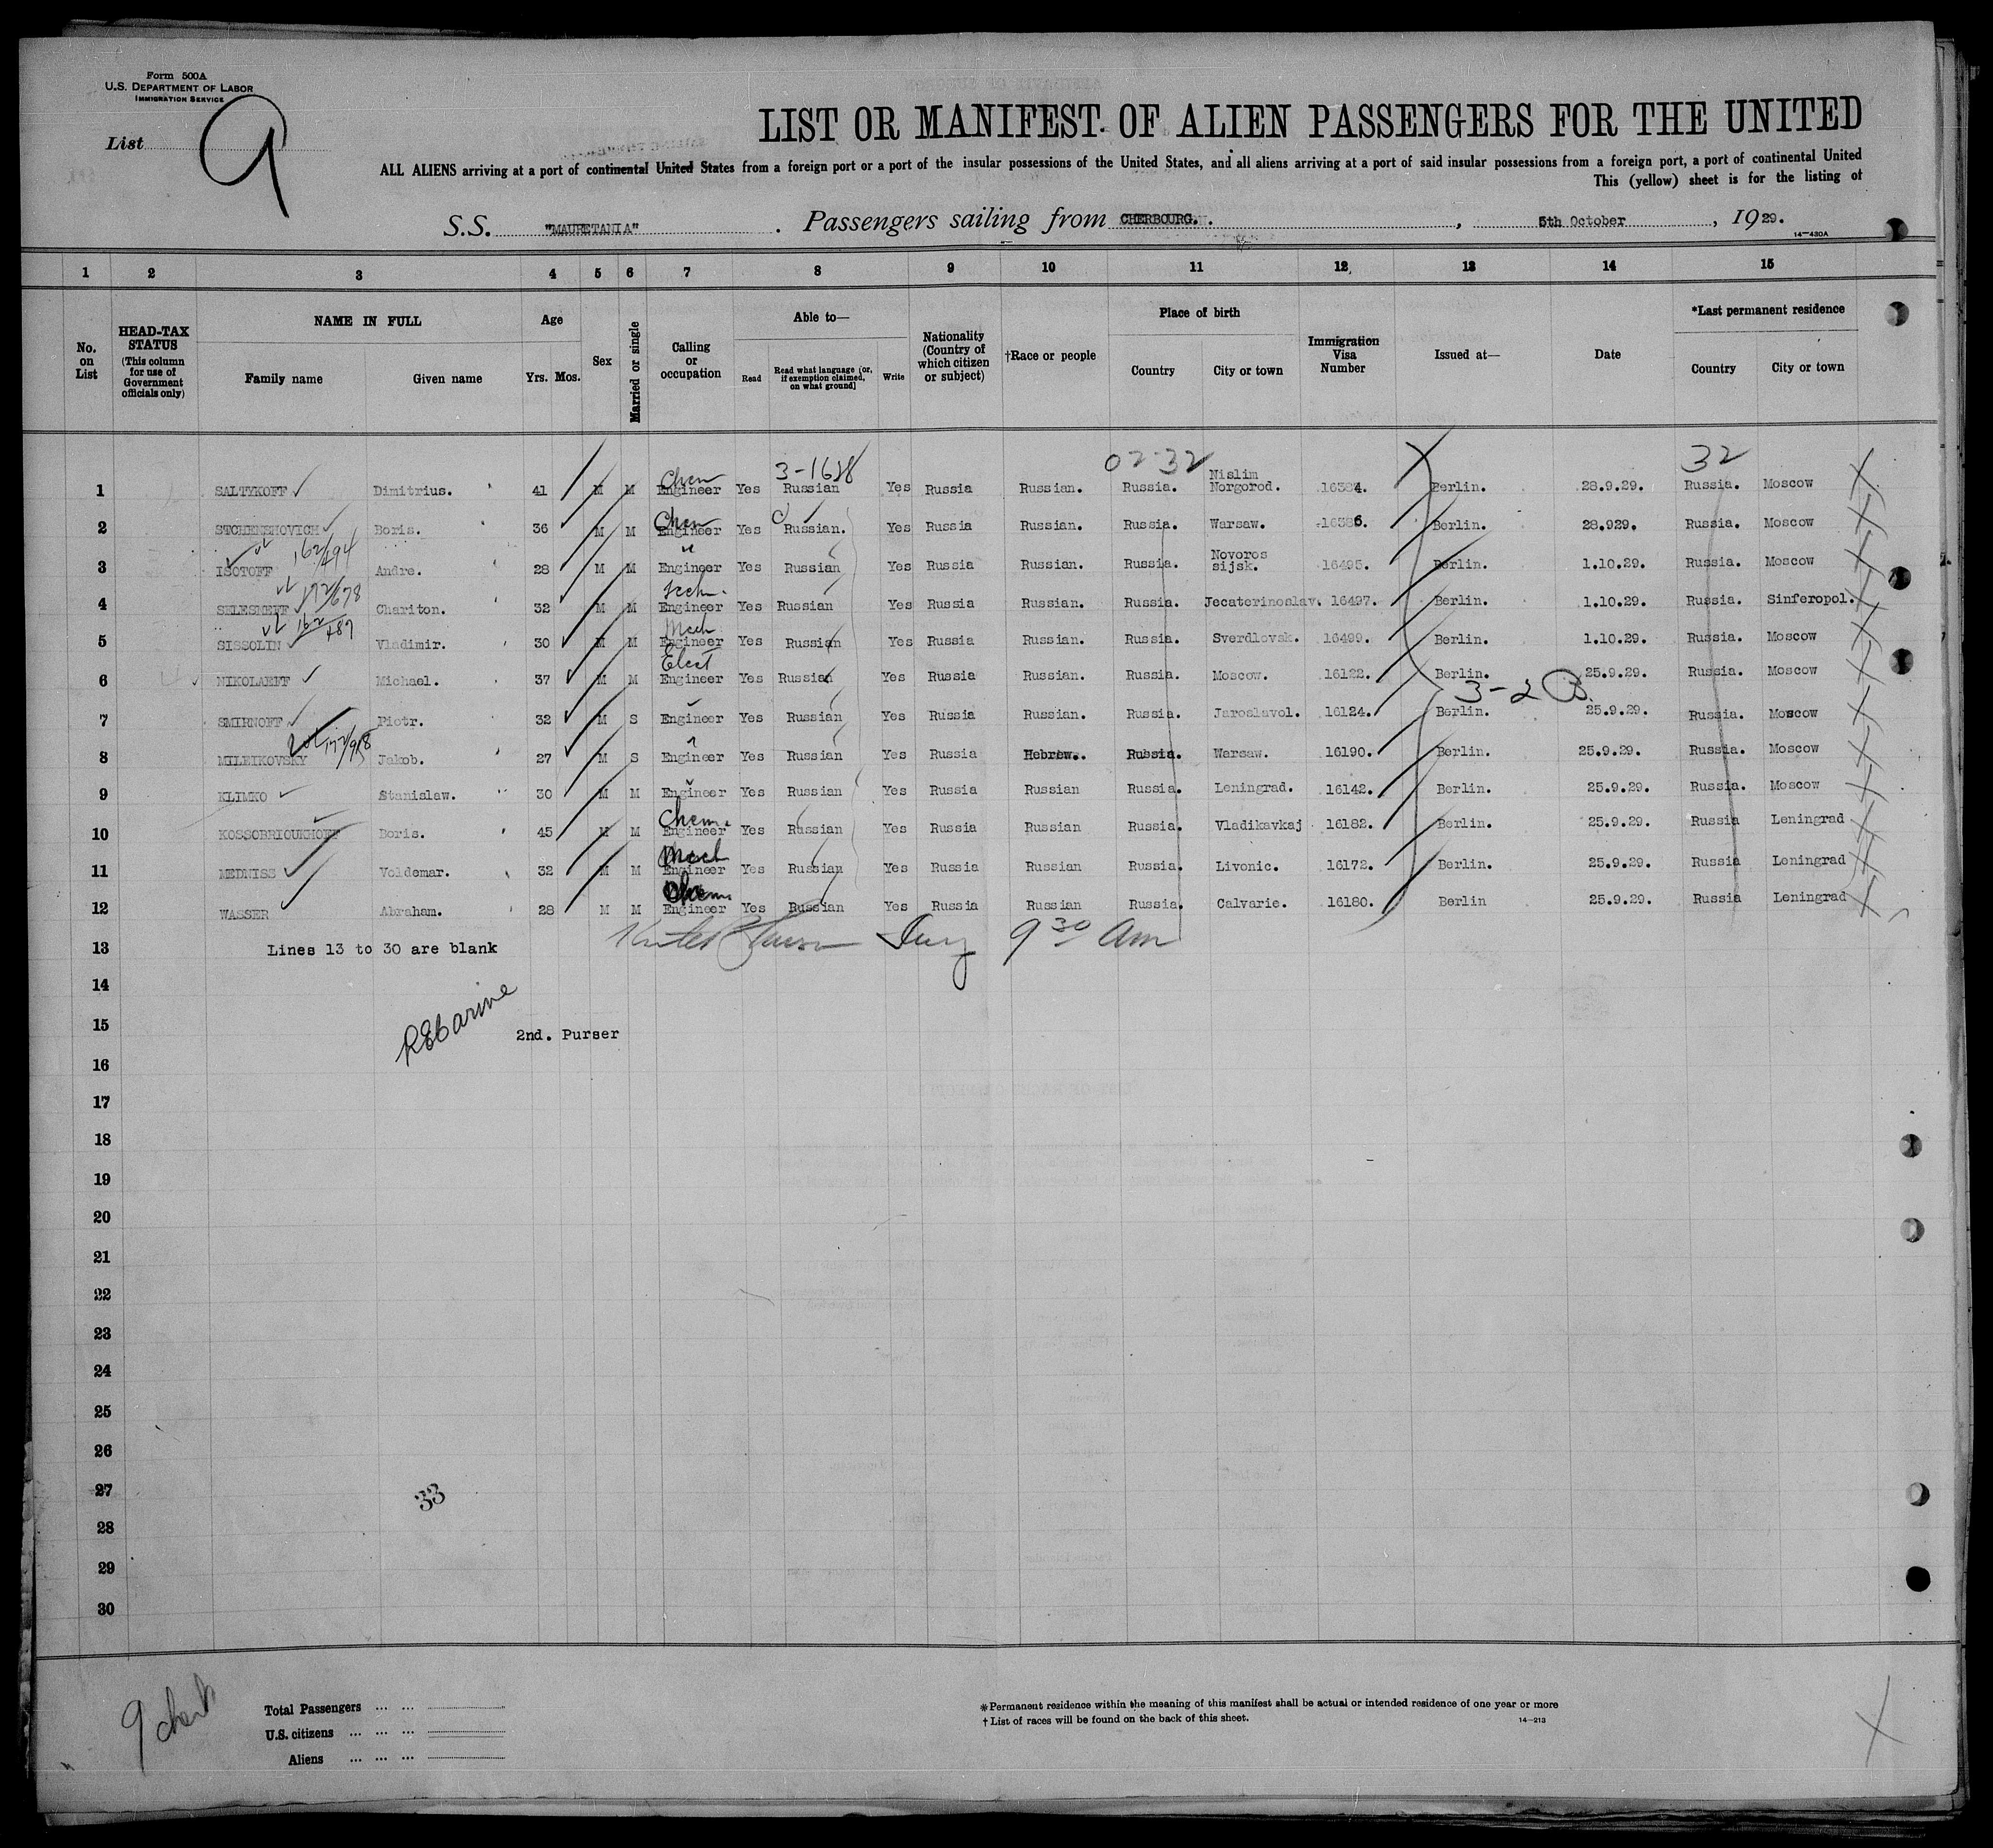 Form 500A
U.S. DEPARTMENT OF LABOR
IMMIGRATION SERVICE
List 9
LIST OR MANIFEST OF ALIEN PASSENGERS FOR THE UNITED
ALL ALIENS arriving at a port of continental United States from a foreign port or a port of the insular possessions of the United States, and all aliens arriving at a port of said insular possessions from a foreign port, a port of continental United
This (yellow) sheet is for the listing of
S.S. "MAURETANIA". Passengers sailing from CHERBOURG. , 5th October , 1929.
14-430A
1 2 3 4 5 6 7 8 9 10 11 12 13 14 15
No. on List
HEAD-TAX STATUS (This column for use of Government officials only)
NAME IN FULL Family name Given name
Age Yrs. Mos.
Sex
Married or single
Calling or occupation
Able to— Read Read what language [or, if exemption claimed, on what ground] Write
Nationality (Country of which citizen or subject)
†Race or people
Place of birth Country City or town
Immigration Visa Number
Issued at—
Date
*Last permanent residence Country City or town
3-1628 02-32 32
1 SALTYKOFF Dimitrius. 41 M M Chem Engineer Yes Russian Yes Russia Russian. Russia. Nislim Norgorod. 16384. Berlin. 28.9.29. Russia. Moscow
2 STCHENSHOVICH Boris. 36 M M Chem Engineer Yes Russian. Yes Russia Russian. Russia. Warsaw. 16386. Berlin. 28.929. Russia. Moscow
162/494
3 ISOTOFF Andre. 28 M M " Engineer Yes Russian Yes Russia Russian. Russia. Novoros sijsk. 16495. Berlin. 1.10.29. Russia. Moscow
172/678
4 Chariton. 32 M M Engineer Yes Russian Yes Russia Russian. Russia. Jecaterinoslav. 16497. Berlin. 1.10.29. Russia. Sinferopol.
162/487
5 SISSOLIN Vladimir. 30 M M Mech Engineer Yes Russian Yes Russia Russian. Russia. Sverdlovsk. 16499. Berlin. 1.10.29. Russia. Moscow
6 NIKOLAEFF Michael. 37 M M Elect Engineer Yes Russian Yes Russia Russian. Russia. Moscow. 16122. Berlin. 25.9.29. Russia. Moscow
3-2
7 SMIRNOFF Piotr. 32 M S Engineer Yes Russian Yes Russia Russian. Russia. Jaroslavol. 16124. Berlin. 25.9.29. Russia. Moscow
8 MILEIKOVSKY Jakob. 27 M S " Engineer Yes Russian Yes Russia Hebrew.. Russia. Warsaw. 16190. Berlin. 25.9.29. Russia. Moscow
9 KLIMKO Stanislaw. 30 M M Engineer Yes Russian Yes Russia Russian Russia. Leningrad. 16142. Berlin. 25.9.29. Russia. Moscow
10 KOSSOBRIOUKHOFF Boris. 45 M M Chem. Engineer Yes Russian Yes Russia Russian Russia. Vladikavkaj 16182. Berlin. 25.9.29. Russia Leningrad
11 MEDNISS Voldemar. 32 M M Mech Engineer Yes Russian Yes Russia Russian Russia. Livonic. 16172. Berlin. 25.9.29. Russia Leningrad
12 WASSER Abraham. 28 M M Chem. Engineer Yes Russian Yes Russia Russian Russia. Calvarie. 16180. Berlin 25.9.29. Russia Leningrad
9 30 am
13 Lines 13 to 30 are blank
14
15 2nd. Purser
16
17
18
19
20
21
22
23
24
25
26
27
33
28
29
30
9
Total Passengers ... ...
U.S. citizens ... ... ...
Aliens ... ... ...
*Permanent residence within the meaning of this manifest shall be actual or intended residence of one year or more
†List of races will be found on the back of this sheet.
14-213